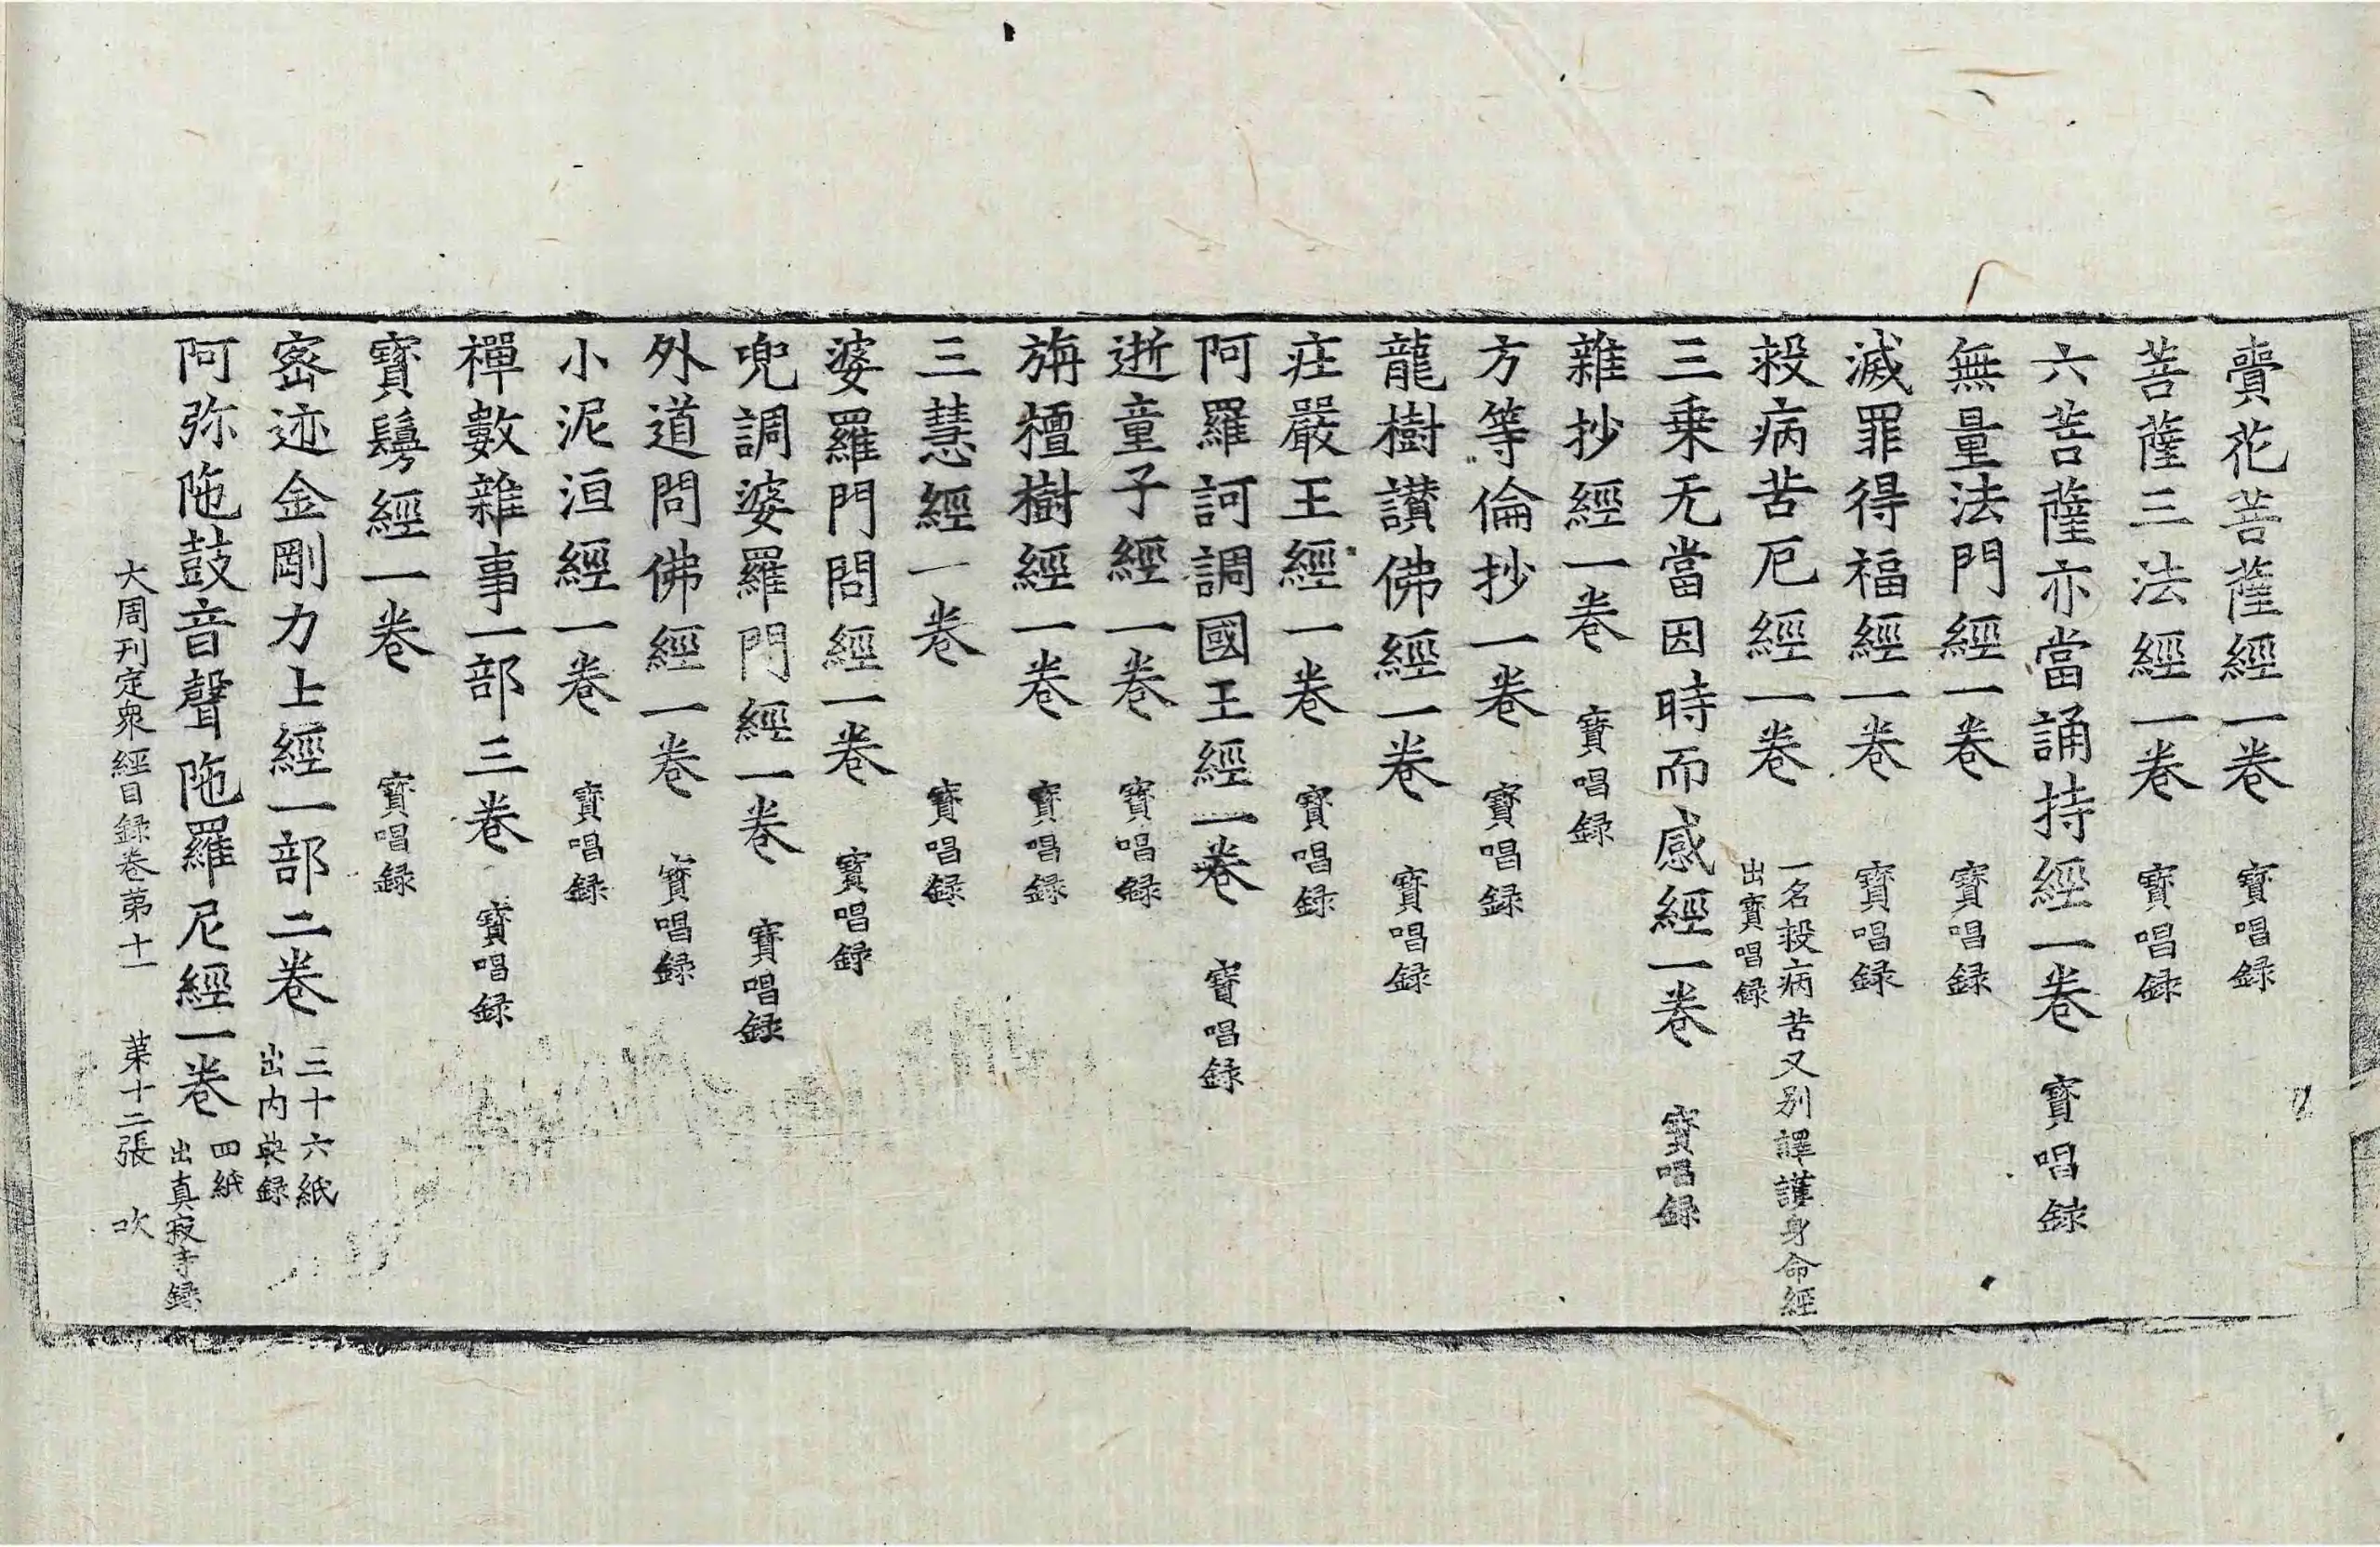 賣花菩薩經一卷 寶唱録
菩薩三法經一卷 寶唱録
六菩薩亦當誦持經一卷 寶唱録
無量法門經一卷 寶唱録
滅罪得福經一卷 寶唱録
殺病苦厄經一卷 一名投病苦又别譯護身命經
出寶唱録
三乗无當因時而感經一卷 寶唱録
雜抄經一卷 寶唱録
方等倫抄一卷 寶唱録
龍樹讃佛經一卷 寶唱録
庄嚴王經一卷 寶唱録
阿羅訶調國王經一卷 寶唱録
逝童子經一卷 寶唱録
旃檀樹經一卷 寶唱録
三慧經一卷 寶唱録
婆羅門問經一卷 寶唱録
兜調婆羅門經一卷 寶唱録
外道問佛經一卷 寶唱録
小泥洹經一卷 寶唱録
禪數雜事一部三卷 寶唱録
寶鬘經一卷 寶唱録
密迹金剛力上經一部二卷 三十六紙
出内典録
阿弥陁鼓音聲陁羅尼經一卷 四紙
出真寂寺録
大周刊定衆經目録卷苐十一 苐十二張 吹